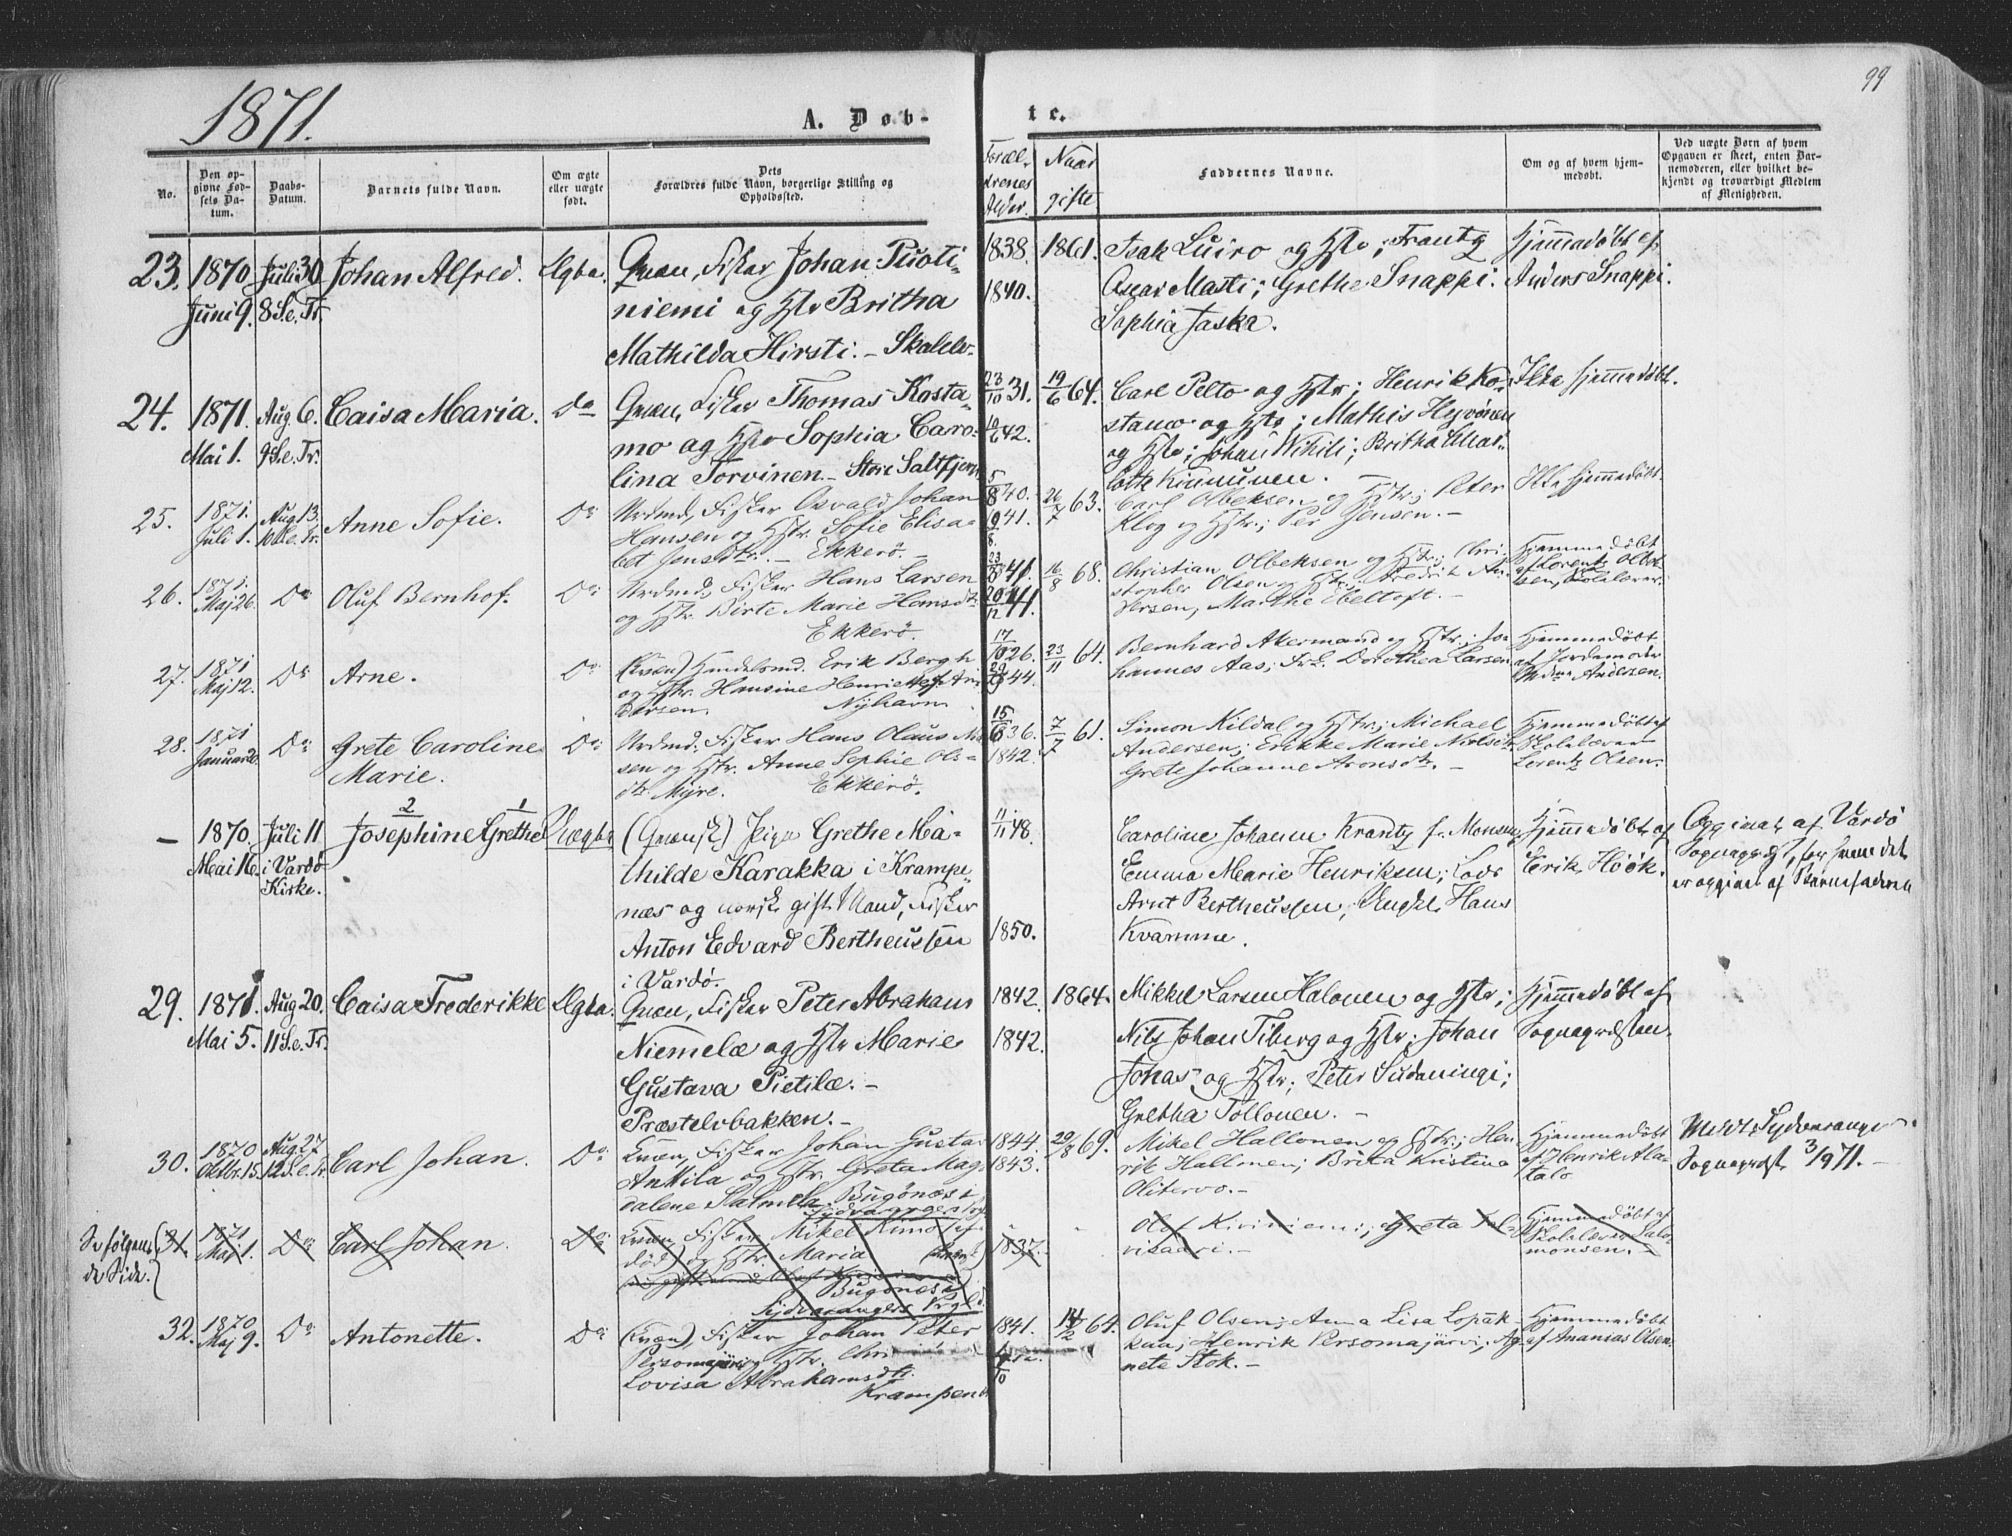 1871.
A. Døb-
te.
99
No.
Den op-
givne Fød-
sels Da-
tum.
Daabs-
Datum.
Barnets fulde Navn.
Om ægte
eller uægte
født.
Dets
Forældres fulde Navn, borgerlige Stilling og
Opholdssted.
Foræl-
drenes
Alder.
Naar
gifte
Faddernes Navne.
Om og af hvem hjem-
medøbt.
Ved uægte Børn af hvem
Opgaven er skeet, enten Bar-
nemoderen, eller hvilket be-
kjendt og troværdigt Medlem
af Menigheden.
23.
1870
Juni 9.
Juli 30
8 S. e. Tr.
Johan Alfred.
Ægta.
Qvæn, Fisker Johan Puoti-
niemi og Hstr Britha
Mathilda Hirsti. - Skalelv-
1838.
1840.
1861.
Isak Luiro og Hstr; Frantz
Oscar Masti; Grethe Snappi.
Sophia Jaska.
Hjemmedøbt af
Anders Snappi.
24.
1871.
Mai 1.
Aug. 6.
9 S. e. Tr.
Caisa Maria.
Do
Qvæn, Fisker Thomas Kosta-
mo og Hstr Sophia Caro-
lina Torvinen. - Store Saltfjern
23/10 31.
10/6 42.
19/6 64.
Carl Pelto og Hstr; Henrik Ko-
stamo og Hstr; Mathis Hyvönen
og Hstr; Johan Wihili; Britha Char-
lotte Kinnunen. -
Ikke hjemmedøbt.
25.
1871.
Juli 1.
Aug. 13.
10 S. e. Tr.
Anne Sofie.
Do
Nrdmd, Fisker Osvald Johan
Hansen og Hstr. Sofie Elisa-
bet Jensdtr. - Ekkerö. -
5/8 40.
19/8 41.
26/7 63.
Carl Olbeksen og Hstr.; Peter
Klog og Hstr.; Per Jensen. -
Ikke hjemmedøbt
26.
1871.
Maj 26.
Do
Oluf Bernhof.
Do
Nrdmd, Fisker Hans Larsen
og Hstr. Birte Marie Hansdtr.
Ekkerö.
23/8 41.
20/12 41.
16/8 68.
Christian Olbeksen og Hstr.; Chri-
stopher Olsen og Hstr.; Fredrik An-
dersen, Marthe Ebeltoft. -
Hjemmedøbt
af Lorentz Olbek-
sen, Skolelærer
27.
1871
Maj 12.
Do
Arne.
Do
(Kvæn) Handelsmd. Erik Bergh
og Hstr. Hansine Henriette f. An-
dersen. Nyhavn.
17/10 26.
44.
23/11 64.
Bernhard Akermand og Hstr.; Jo-
hannes Aas; Frk. Dorothea Larsen
Hjemmedøbt
af Jordemoder
Andersen.
28.
1871
Januar
Do
Grete Caroline
Marie.
Do
Nrdmd. Fisker Hans Olaus
sen og Hstr. Anne Sophie Ols-
dtr. Myre. Ekkerö.
15/10 36.
1842.
7/7 61.
Simon Kildal og Hstr.; Michael
Andersen; Erikke Marie Nielsdtr.
Grete Johanne Aronsdtr. -
Hjemmedøbt af
Skolelærer
Lorentz Olsen.
-
1870.
Mai 16.
Juli 11
i Vardø
Kirke.
2 1
Josephine Grethe
Uægta
(Qvænsk) Pige Grethe Ma-
thilde Karakka i Krampe-
næs og norsk gift Mand, Fisker
Anton Edvard Bertheussen
i Vardø.
11/11 48.
1850.
Caroline Johanne Krantz f. Monsen;
Emma Marie Henriksen; Lods
Arnt Bertheussen; Ungkl. Hans
Kvamme.
Hjemmedøbt af
Erik Höök.
Opgivet af Vardø
Sognepræst, for hvem det
er opgivet af Barnefaderen
29.
1871.
Mai 5.
Aug. 20.
11 S. e. Tr.
Caisa Frederikke
Ægta.
Qvæn, Fisker Peter Abraham
Niemelæ og Hstr Marie
Gustava Pietilæ. -
Præstelvbakken. -
1842.
1842.
1864.
Mikkel Larsen Halonen og Hstr;
Nils Johan Tiberg og Hstr; Johan
Johas og Hstr; Peter Sudaningi;
Gretha Tollonen. -
Hjemmedøbt af
Sognepræsten.
30.
1870
Oktbr. 15.
Aug. 27
12 S. e. Tr.
Carl Johan.
Do
Kvæn, Fisker Johan Gusta
Anttila og Hstr. Greta Mag-
dalene Salmela Bugönæs i
Sydvaranger
1844.
1843.
29/8 69.
Mikel Hallonen og Hstr.; Hen-
rik Hallonen; Brita Kristina
Olitervo. -
Hjemmedøbt
af Henrik Ala-
talo
Meldt Sydvaranger
Sognepræst 3/9 71. -
Se følgen-
de Side.
31.
1871
Maj 1.
Do
Carl Johan
Do
Kvæn, Fisker Mikel
död) og Hstr. Maria
Bugönæs i
Sydvarangers Prgld.
1837.
Olof Kiviniemi; Greta
visaari. -
Hjemmedøbt af
Skolelærer Salo-
monsen. -
32.
1870
Maj 9.
Do
Antonette.
Do
(Kvæn), Fisker Johan Peter
Personajärvi og Hstr. Chri
Lovisa Abrahamsdtr.
Krampenæs
1841.
14/2 64.
Oluf Olsen; Anna Lisa Lopak-
kaa; Henrik Personajärvi; Ag-
nete Stok. -
Hjemmedøbt
af Ananias Olsen.